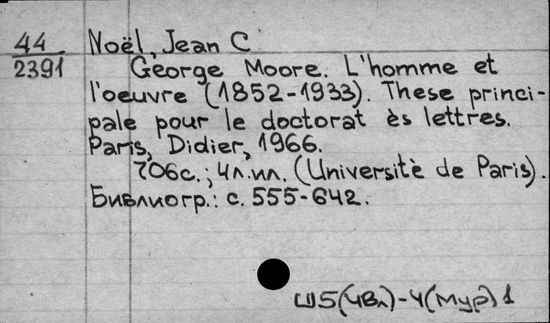 44 Noël, Jean C
2391 George Moore. L'homme et
l'oeuvre (1852-1933). These princi-
pale pour le doctorat ès lettres.
Paris, Didier, 1966.
706с.; 4л.ил. (Universitè de Paris).
Библиогр.: с. 555-642.
Ш5(4Вл)-4(Мур)1